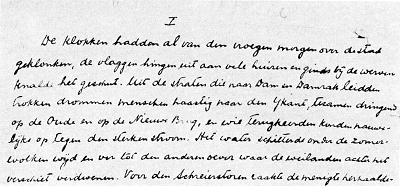 I
De klokken hadden al van den vroegen morgen over de stad
geklonken, de vlaggen hingen uit aan vele huizen en ginds bij de werven
knalde het geschut. Uit de straten die naar Dam en Damrak leidden
trokken drommen menschen haastig naar den IJkant, tezamen dringend
op de Oude en op de Nieuwe Brug, en wie terugkeerden konden nauwe-
lijks op tegen den sterken stroom. Het water schitterde onder de zomer-
wolken wijd en ver tot den anderen oever waar de weilanden achter het
verschiet verdwenen. Voor den Schreierstoren raakte de menigte herhaalde-